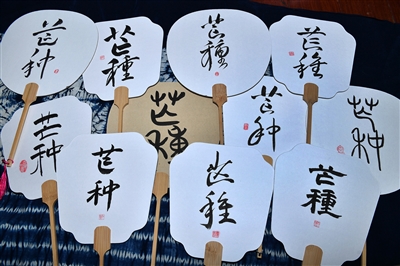 芒种
芒種
芒種
芒種
芒种
芒種
芒种
芒種
芒种
芒種
芒種